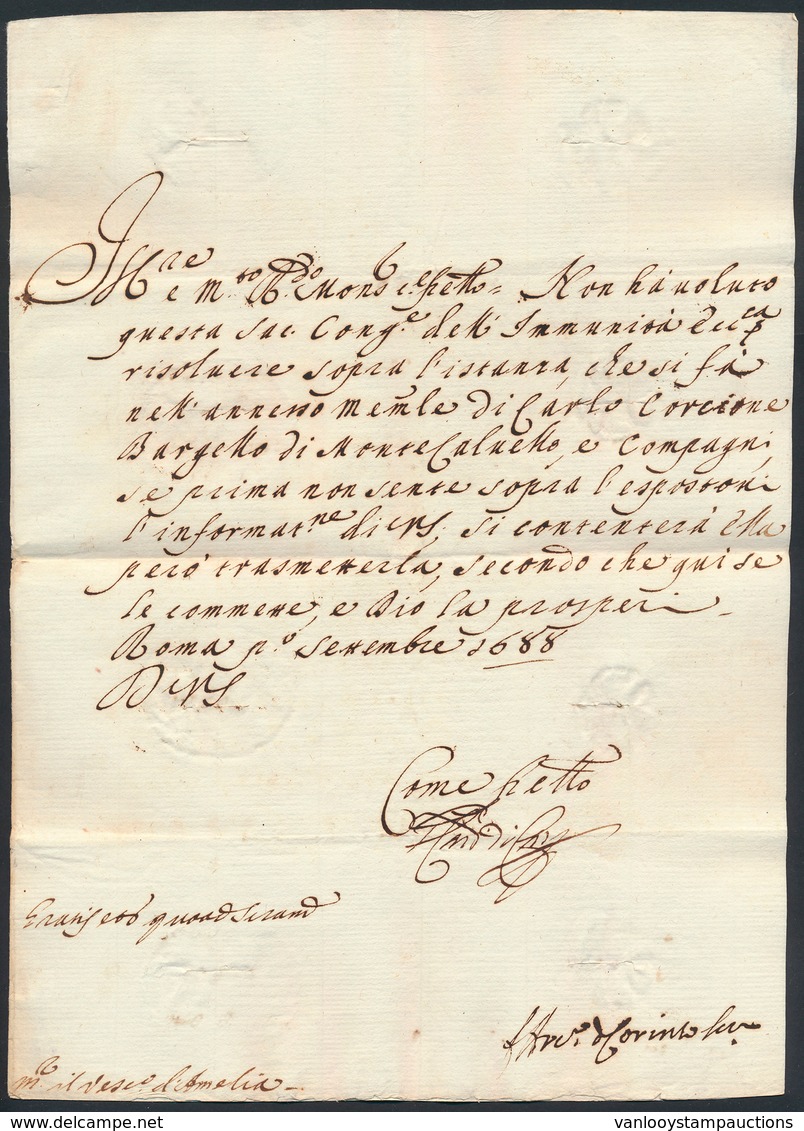 Ill.re
e m.to R.do Mons.r Come f̃rello = Non há voluto
questa Sac. Cong.e dell' Immunità Ecc.ca
risoluere sopra l'istanza, che si fà
nell'annesso Memle di Carlo Corcione
Bargello di Monte Caluello, e Compagni,
se prima non sente sopra l'espostoui
l'informat.ne di VS, si contenterà Ella
però trasmetterla, secondo che qui se
le commette, e Dio la prosperi –
Roma p.o Settembre 1688
Di VS
Come f̃rello
Card. di
Gratis etõ quoad Scrand
f Arc.o di Corinto Seg.
m.r il Vesc.o di Amelia –
vanlooystampauctions